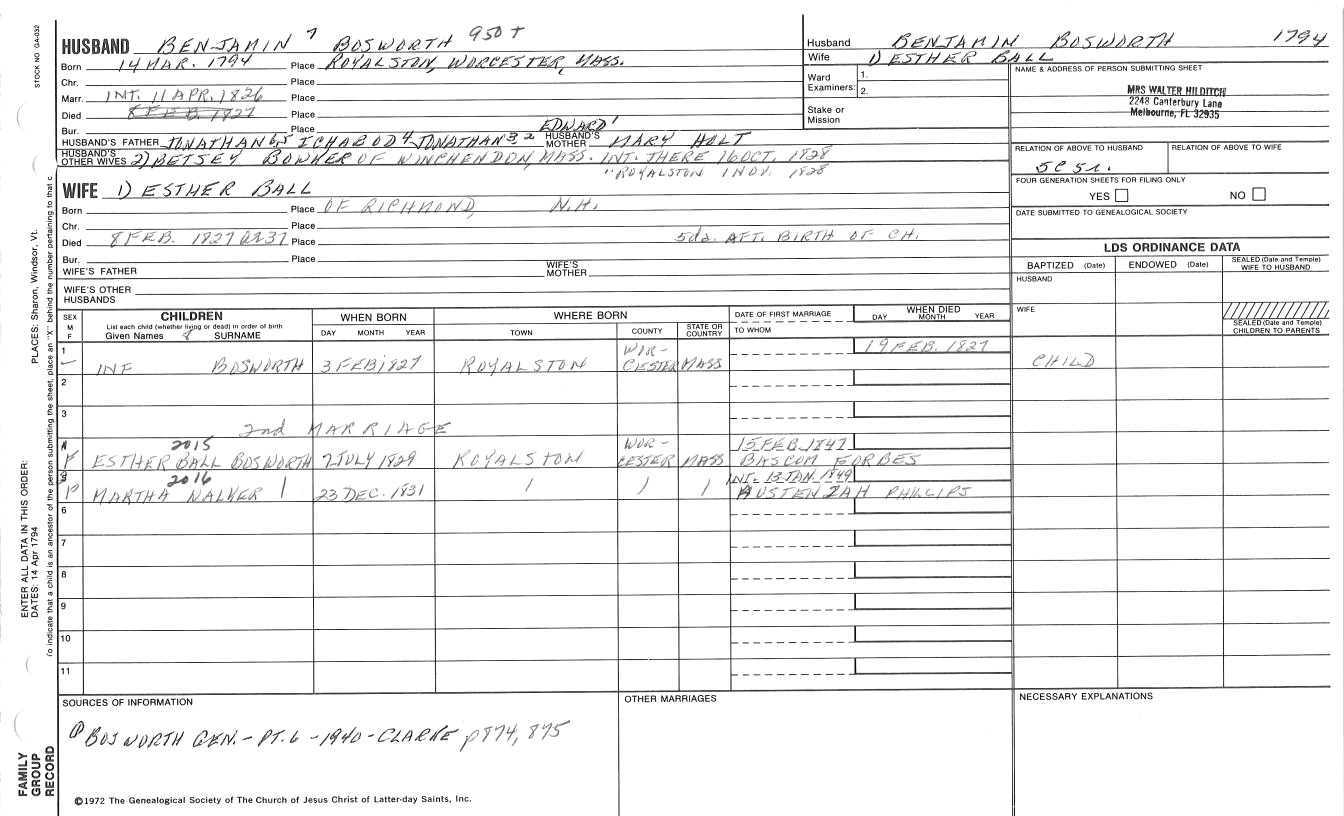 STOCK NO. GA-032
PLACES: Sharon, Windsor, Vt.
ENTER ALL DATA IN THIS ORDER:
DATES: 14 Apr 1794
To indicate that a child is an ancestor of the person submitting the sheet, place an "X" behind the number pertaining to that c
FAMILY GROUP RECORD
HUSBAND BENJAMIN 7 BOSWORTH 950+
Born 14 MAR. 1794 Place ROYALSTON, WORCESTER, MASS.
Chr. Place
Marr. INT. 11 APR. 1826 Place
Died 8 FEB. 1827 Place
Bur. Place
HUSBAND'S FATHER JONATHAN 6,5 ICHABOD 4 JONATHAN 3,2 EDWARD 1 HUSBAND'S MOTHER MARY HOLT
HUSBAND'S OTHER WIVES 2) BETSEY BOWKER OF WINCHENDON, MASS. INT. THERE 16 OCT. 1828
" ROYALSTON 1 NOV. 1828
WIFE 1) ESTHER BALL
Born Place OF RICHMOND, N.H.
Chr. Place
Died 8 FEB. 1827 Place 5da. AFT. BIRTH OF CH.
Bur. Place
WIFE'S FATHER WIFE'S MOTHER
WIFE'S OTHER HUSBANDS
Husband BENJAMIN BOSWORTH 1794
Wife 1) ESTHER BALL
Ward Examiners: 1. 2.
Stake or Mission
NAME & ADDRESS OF PERSON SUBMITTING SHEET
MRS WALTER HILDITCH
2248 Canterbury Lane
Melbourne, FL 32935
RELATION OF ABOVE TO HUSBAND RELATION OF ABOVE TO WIFE
5C 5r.
FOUR GENERATION SHEETS FOR FILING ONLY
YES NO
DATE SUBMITTED TO GENEALOGICAL SOCIETY
LDS ORDINANCE DATA
BAPTIZED (Date) ENDOWED (Date) SEALED (Date and Temple) WIFE TO HUSBAND
HUSBAND
WIFE
SEALED (Date and Temple) CHILDREN TO PARENTS
SEX M F CHILDREN WHEN BORN WHERE BORN DATE OF FIRST MARRIAGE WHEN DIED
List each child (whether living or dead) in order of birth
Given Names 8 SURNAME DAY MONTH YEAR TOWN COUNTY STATE OR COUNTRY TO WHOM DAY MONTH YEAR
1 INF BOSWORTH 3 FEB 1827 ROYALSTON WOR-CESTER MASS 19 FEB. 1827 CHILD
2
3
2nd MARRIAGE
F 2015 ESTHER BALL BOSWORTH 2 JULY 1829 ROYALSTON WOR-CESTER MASS 15 FEB. 1847 BASCOM FORBES
2016 MARTHA WALKER 1 23 DEC. 1831 / / / INT. 13 JAN 1849 AUSTEN ZAH PHILLIPS
6
7
8
9
10
11
SOURCES OF INFORMATION OTHER MARRIAGES NECESSARY EXPLANATIONS
BOSWORTH GEN. - PT. 6 - 1940 - CLARKE p874, 875
©1972 The Genealogical Society of The Church of Jesus Christ of Latter-day Saints, Inc.